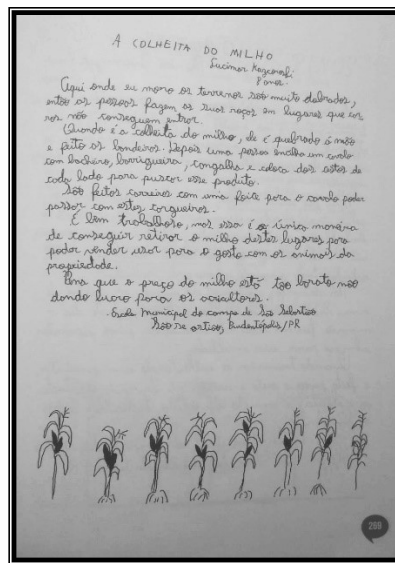 A COLHEITA DO MILHO
Lucimar
anos
Aqui onde eu moro os terrenos são muito dobrados,
então as pessoas fazem as suas roças em lugares que car
ros não conseguem entrar.
Quando é a colheita do milho, ele é quebrado a mão
e feito os bandeiros. Depois uma pessoa encilha um cavalo
com bacheiro, barrigueira, cangalha e coloca dos cestos de
cada lado para puxar esse produto.
São feitos carreiros com uma foice para o cavalo poder
passar com estes cargueiros.
É bem trabalhoso, mas essa é a única maneira
de conseguir retirar o milho destes lugares para
poder vender usar para o gasto com os animais da
propriedade.
que o preço do milho está tão barato não
dando lucro para os
Escola Municipal do campo de São Sebastião
Prudentópolis/PR
289